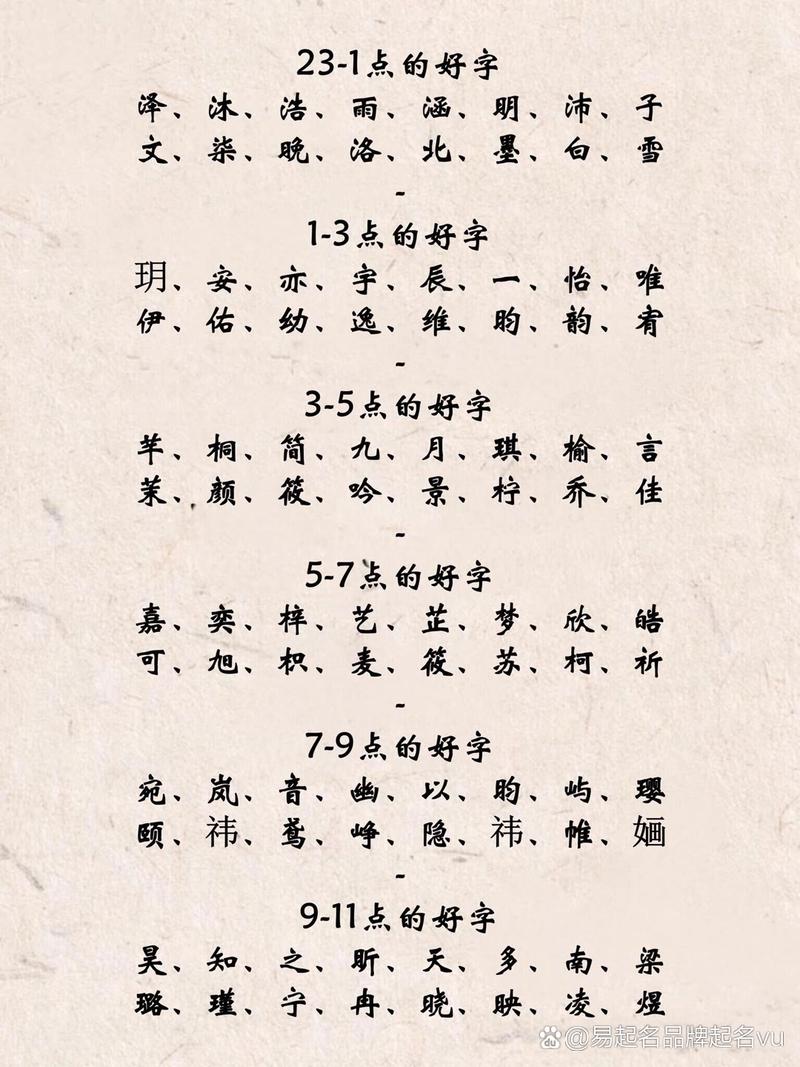 23-1点的好字
泽、沐、浩、雨、涵、明、沛、子
文、柒、晚、洛、北、墨、白、雪
-
1-3点的好字
玥、安、亦、宇、辰、一、怡、唯
伊、佑、幼、逸、维、昀、韵、宥
-
3-5点的好字
芊、桐、简、九、月、琪、榆、言
茉、颜、筱、吟、景、柠、乔、佳
-
5-7点的好字
嘉、奕、梓、艺、芷、梦、欣、皓
可、旭、枳、麦、筱、苏、柯、祈
-
7-9点的好字
宛、岚、音、幽、以、昀、屿、璎
颐、祎、鸢、峥、隐、祎、帷、婳
-
9-11点的好字
昊、知、之、昕、天、多、南、梁
璐、瑾、宁、冉、晓、映、凌、煜
@易起名品牌起名vu